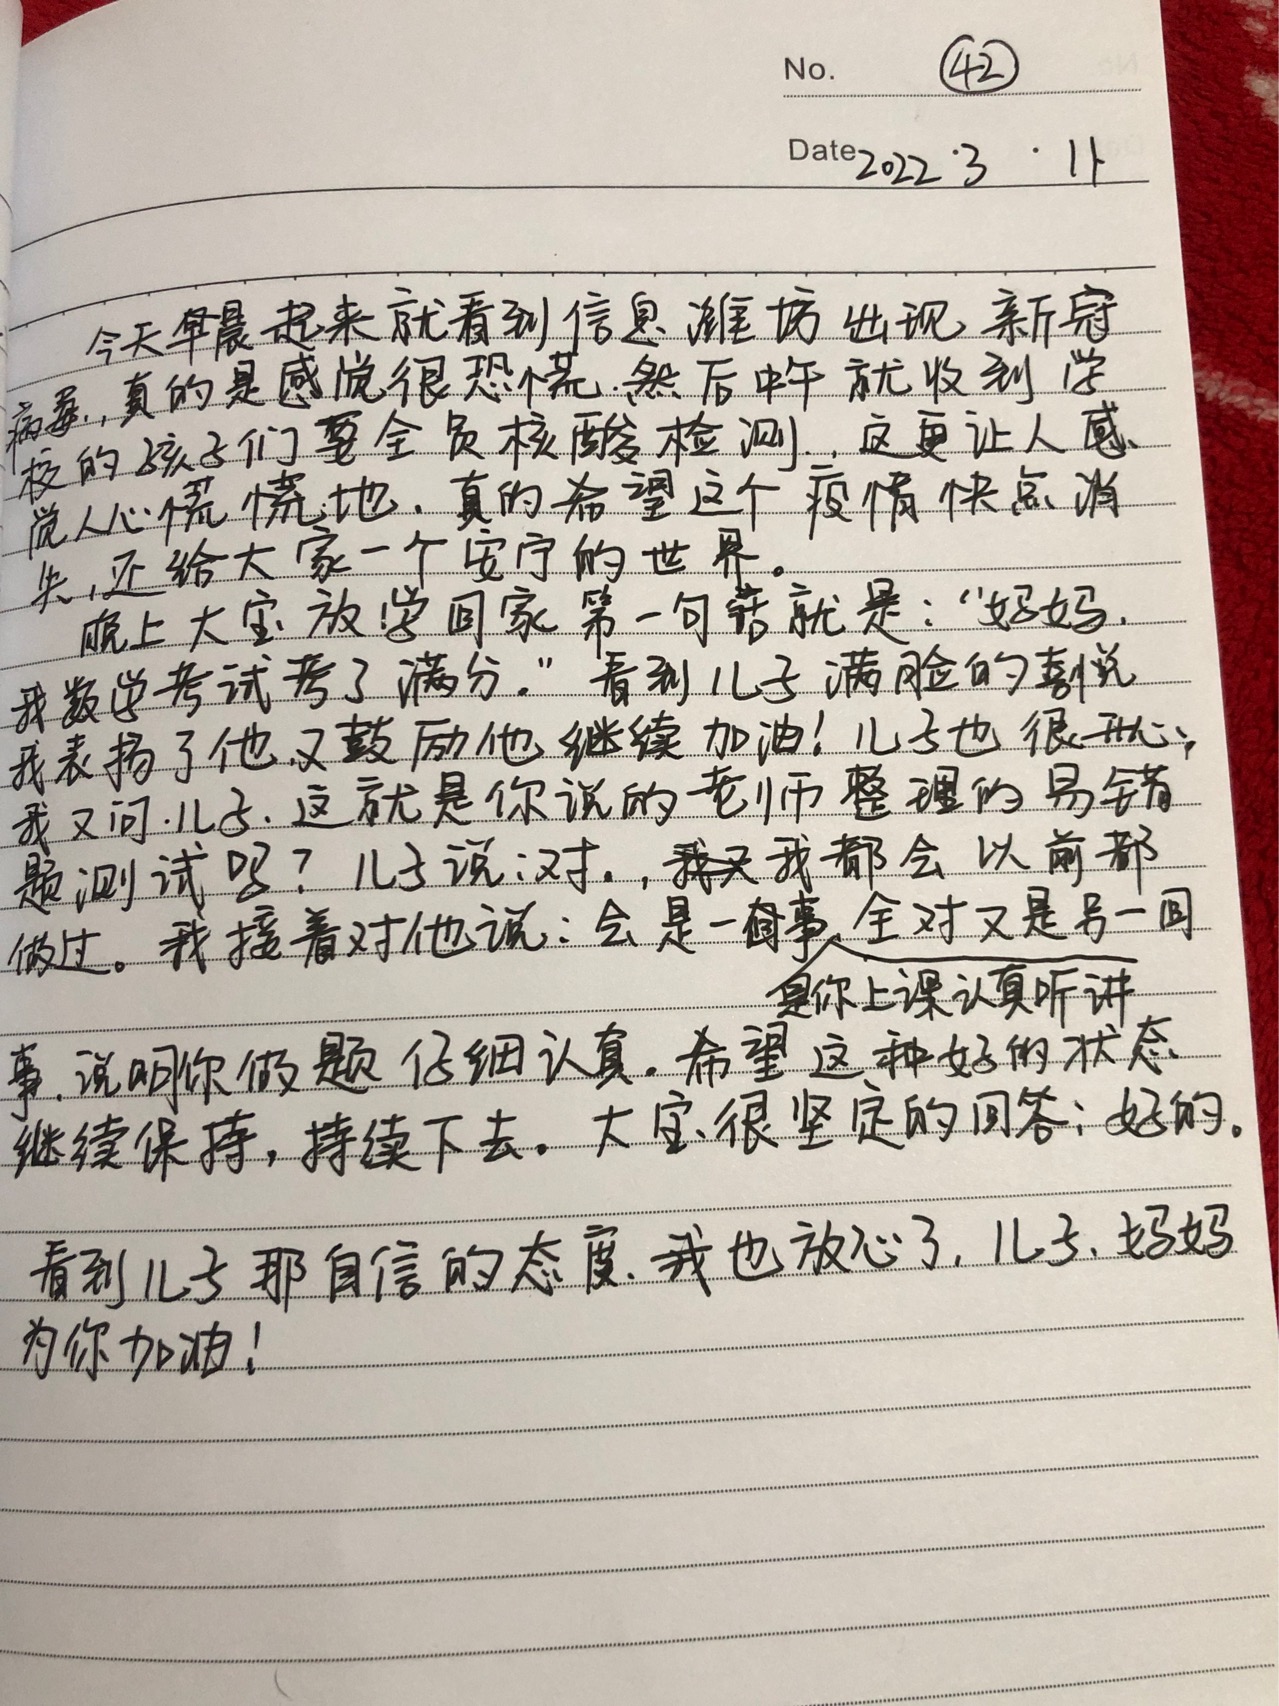 No. 42
Date 2022.3.11
今天早晨起来就看到信息潍坊出现新冠
病毒,真的是感觉很恐慌.然后中午就收到学
校的孩子们要全员核酸检测.,这更让人感
觉人心慌慌地.真的希望这个疫情快点消
失,还给大家一个安宁的世界。
晚上大宝放学回家第一句话就是:“妈妈.
我数学考试考了满分.”看到儿子满脸的喜悦
我表扬了他.又鼓励他继续加油!儿子也很开心;
我又问.儿子.这就是你说的老师整理的易错
题测试吗?儿子说:对.,我都会以前都
做过。我接着对他说:会是一回事,全对又是另一回
是你上课认真听讲
事.说明你做题仔细认真.希望这种好的状态
继续保持,持续下去。大宝很坚定的回答:好的。
看到儿子那自信的态度.我也放心了,儿子、妈妈
为你加油!